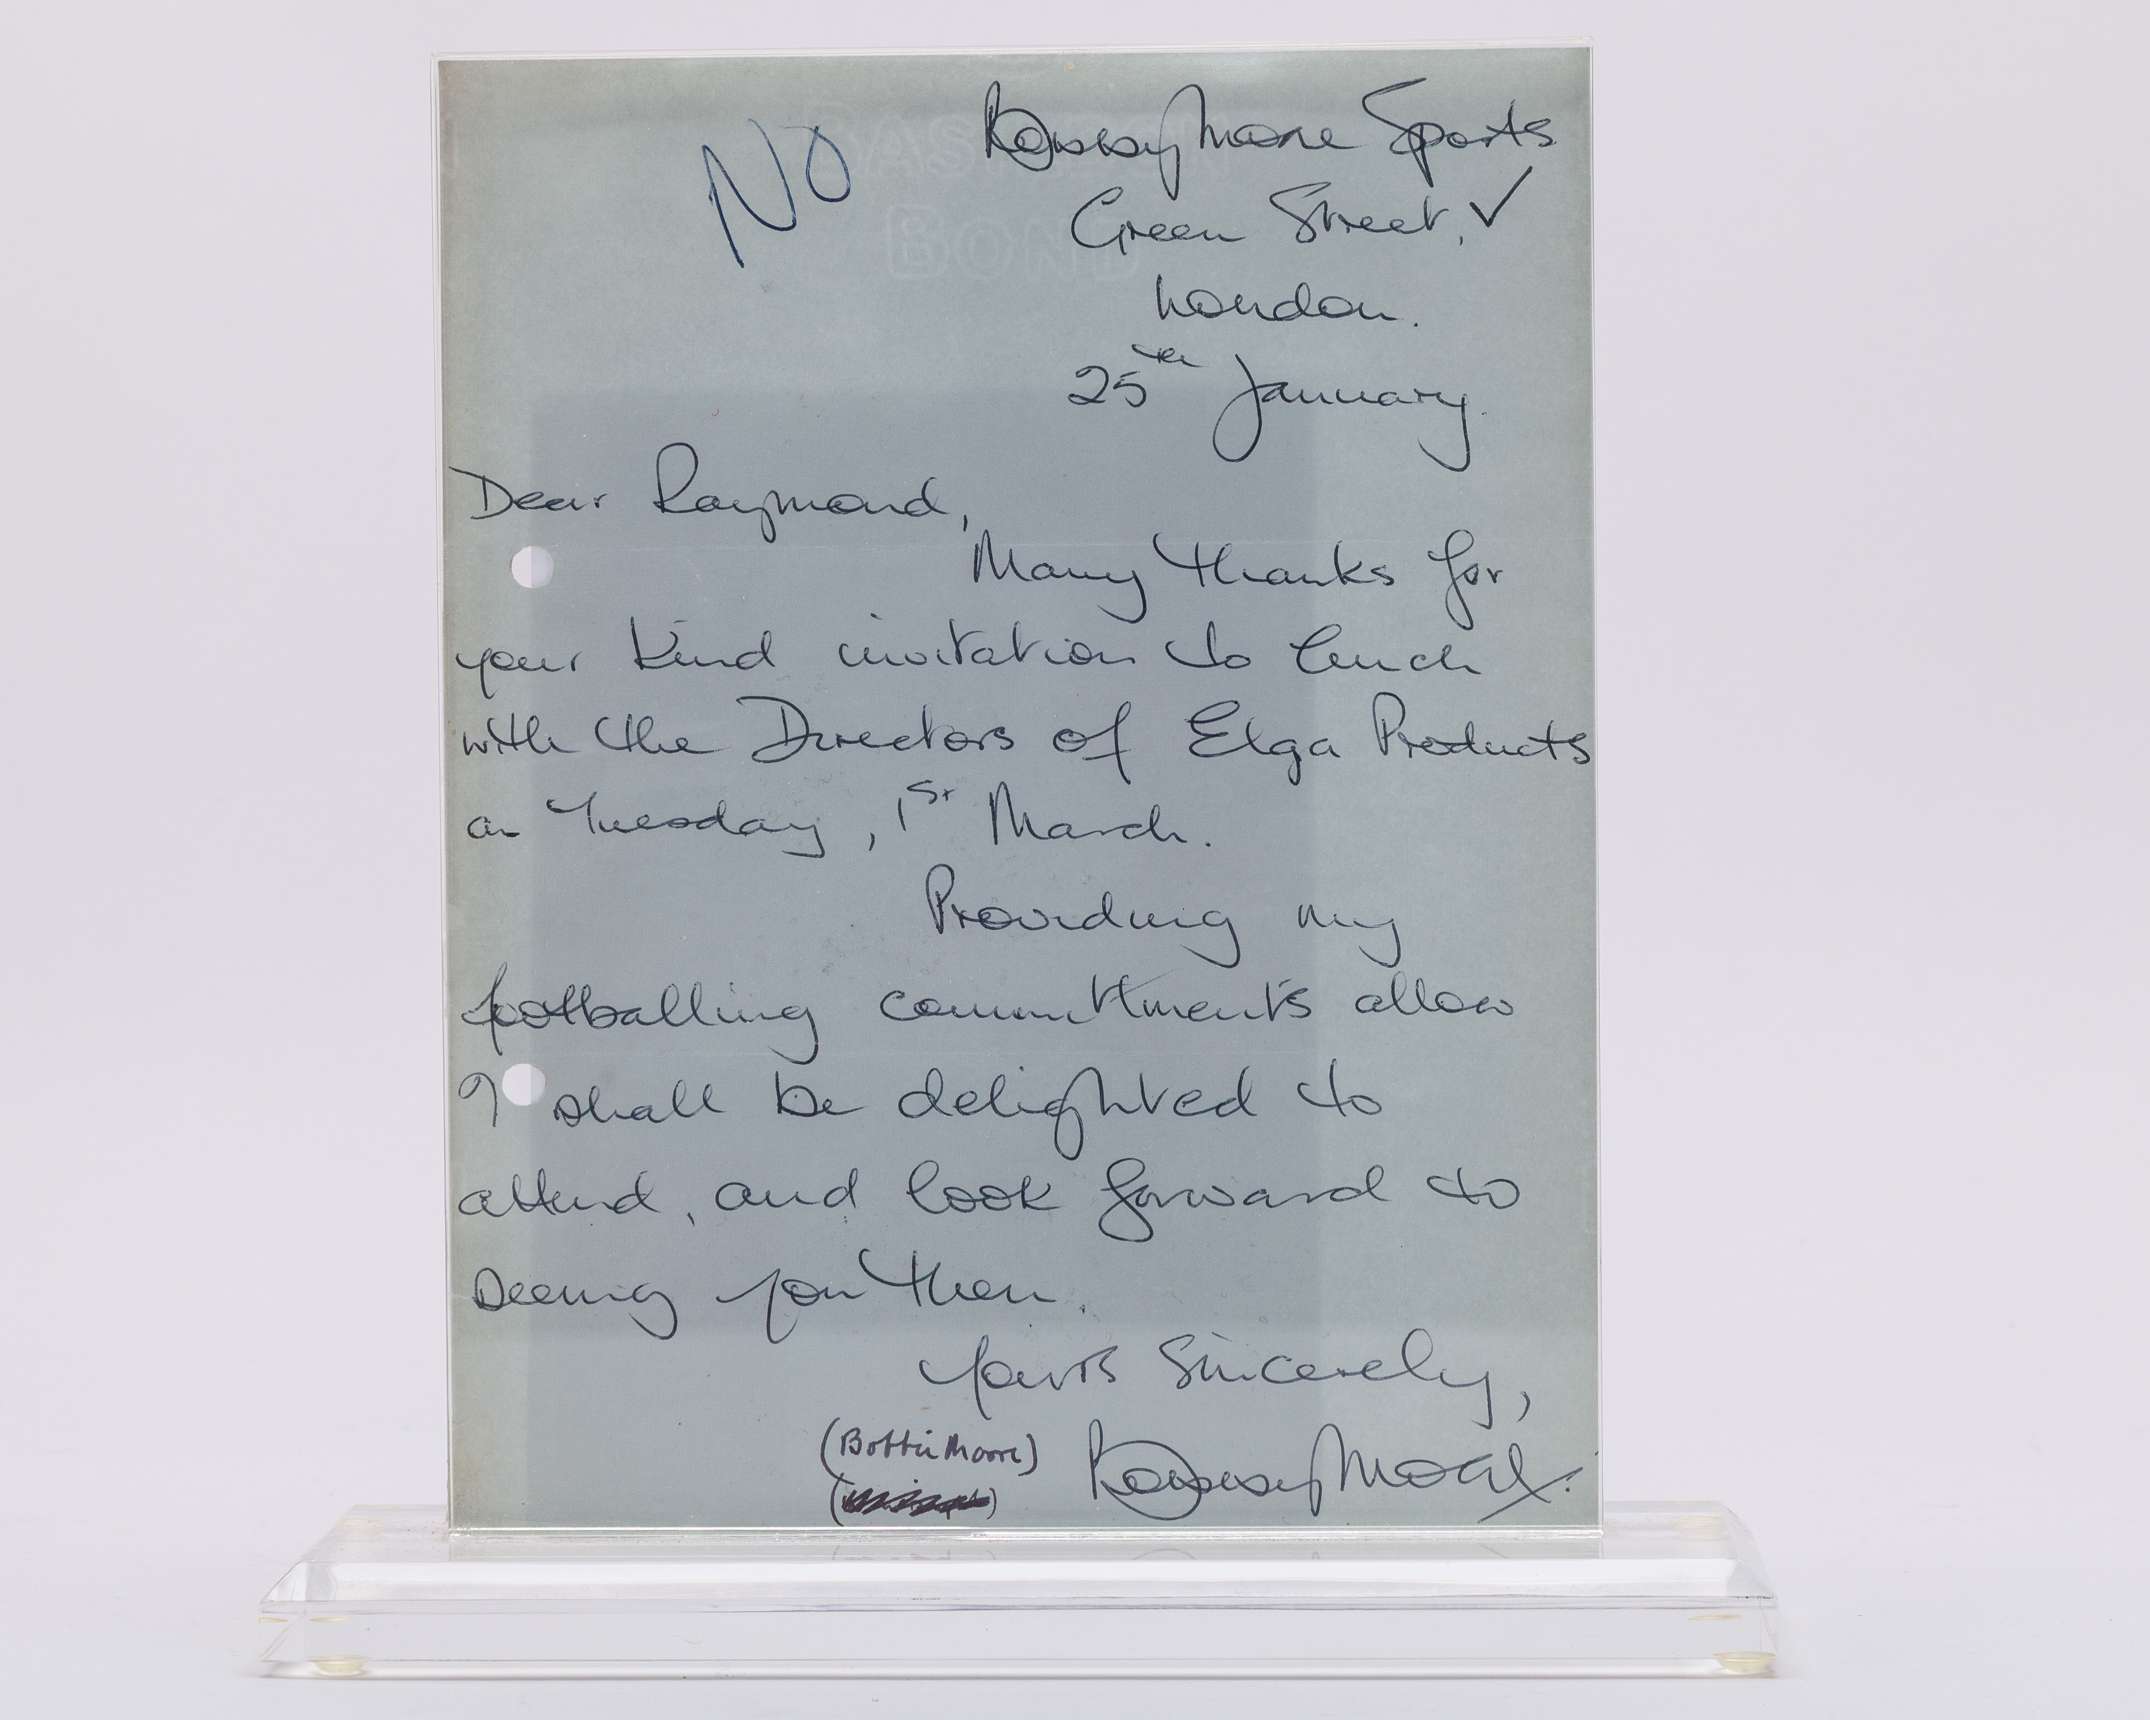 NO
Bobby Moore Sports
Green Street, ✓
London.
25th January.
BASILDON
BOND
Dear Raymond,
Many thanks for
your kind invitation to lunch
with the Directors of Elga Products
on Tuesday, 1st March.
Providing my
footballing commitments allow
I shall be delighted to
attend, and look forward to
seeing you then.
Yours Sincerely,
(Bobby Moore)
Bobby Moore.